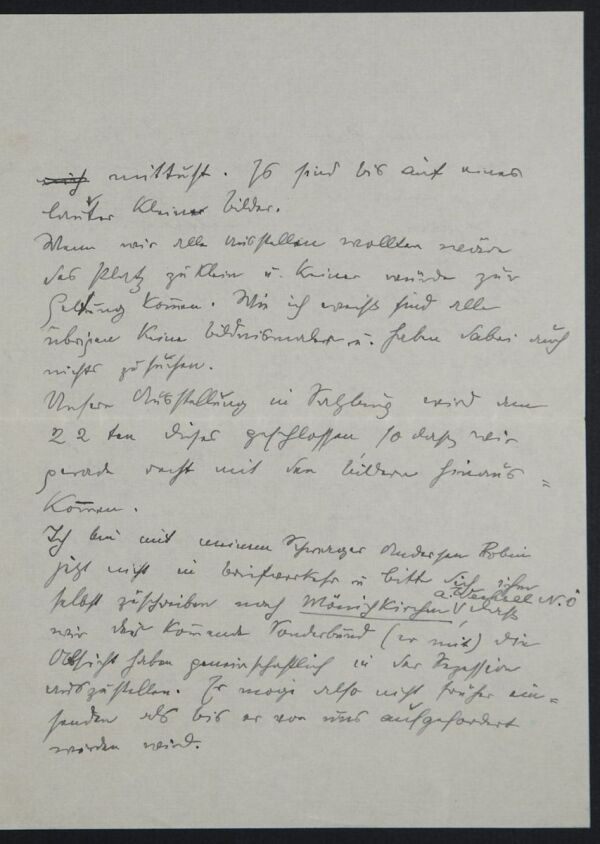 mittust. Es sind bis auf eines
lauter kleine Bilder.
Wenn wir alle ausstellen wollten wäre
das Platz zu klein u. keiner würde zur
Geltung kommen. Wie ich weiß sind alle
übrigen keine Bildnismaler u. haben dabei auch
nichts zu suchen.
Unsere Ausstellung in Salzburg wird am
22 ten dieses geschlossen, so daß wir
gerade recht mit den Bildern hinaus=
kommen.
Ich bin mit meinem Schwager Andersen Robin
jetzt nicht in Briefverkehr u bitte dich ihm
selbst zuschreiben nach Mönichkirchen a. Wechsel N.Ö daß
wir der kommende Sonderbund (er mit) die
Absicht haben gemeinschaftlich in der Sezession
auszustellen. Er möge also nicht früher ein=
senden als bis er von uns aufgefordert
werden wird.